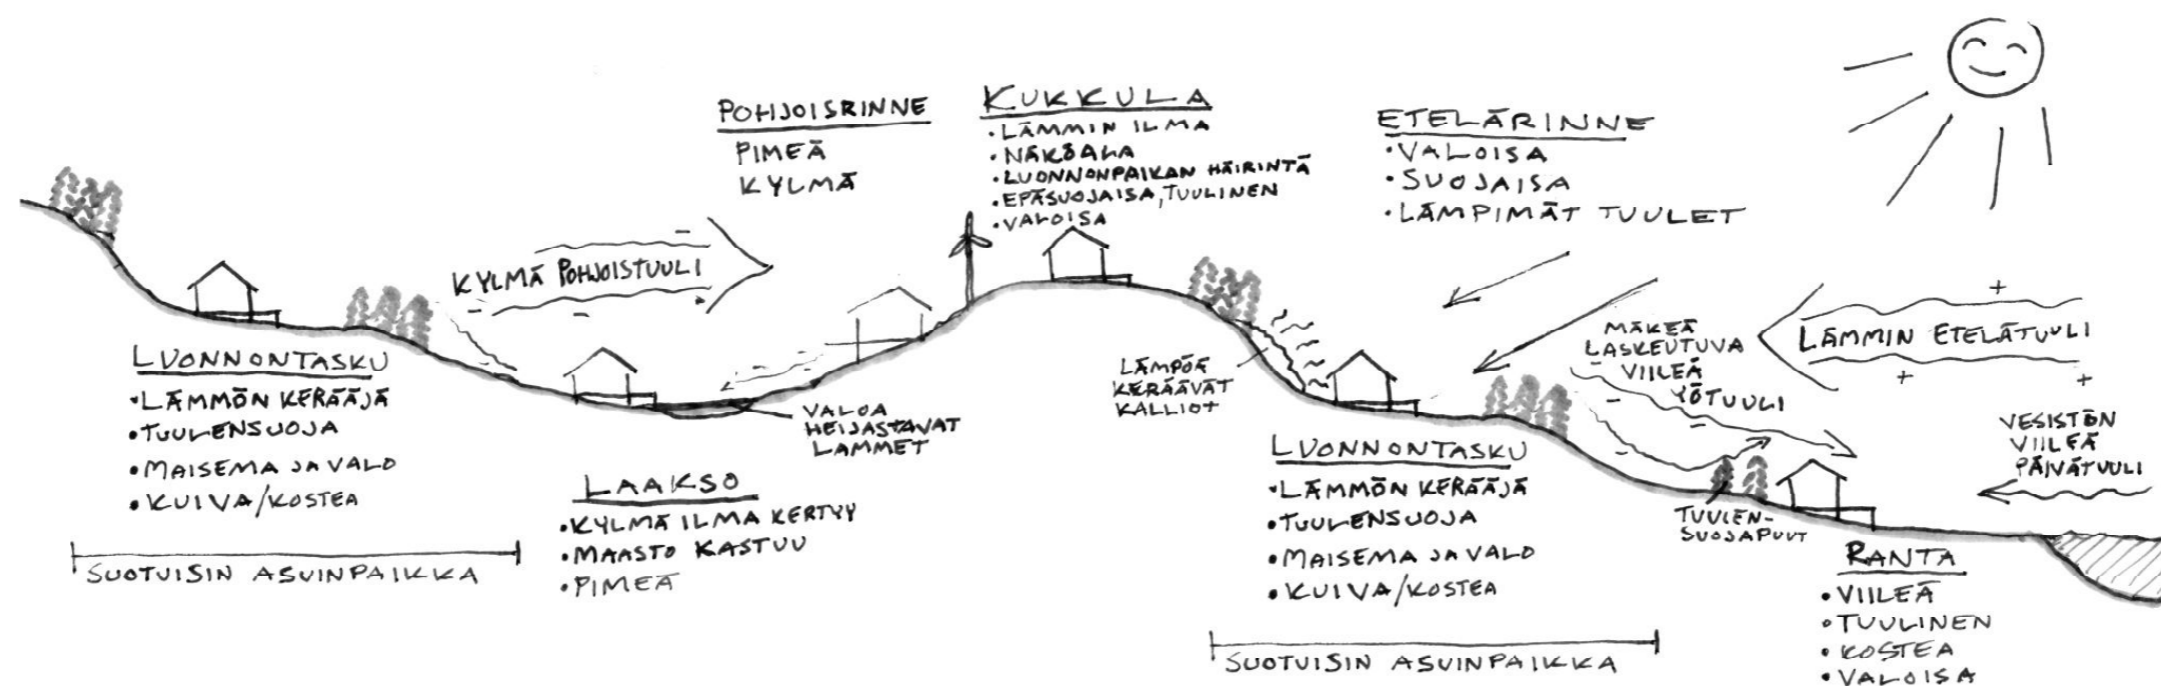 POHJOISRINNE
PIMEÄ
KYLMÄ
KUKKULA
•LÄMMIN ILMA
•NÄKÖALA
•LUONNONPAIKAN HÄIRINTÄ
•EPÄSUOJAISA, TUULINEN
•VALOISA
ETELÄRINNE
•VALOISA
•SUOJAISA
•LÄMPIMÄT TUULET
KYLMÄ POHJOISTUULI
LÄMMIN ETELÄTUULI
LUONNONTASKU
•LÄMMÖN KERÄÄJÄ
•TUULENSUOJA
•MAISEMA JA VALO
•KUIVA/KOSTEA
SUOTUISIN ASUINPAIKKA
VALOA
HEIJASTAVAT
LAMMET
LAAKSO
•KYLMÄ ILMA KERTYY
•MAASTO KASTUU
•PIMEÄ
LÄMPÖÄ
KERÄÄVÄT
KALLIOT
MÄKEÄ
LASKEUTUVA
VIILEÄ
YÖTUULI
LUONNONTASKU
•LÄMMÖN KERÄÄJÄ
•TUULENSUOJA
•MAISEMA JA VALO
•KUIVA/KOSTEA
SUOTUISIN ASUINPAIKKA
TUULEN-
SUOJAPUUT
VESISTÖN
VIILEÄ
PÄIVÄTUULI
RANTA
•VIILEÄ
•TUULINEN
•KOSTEA
•VALOISA